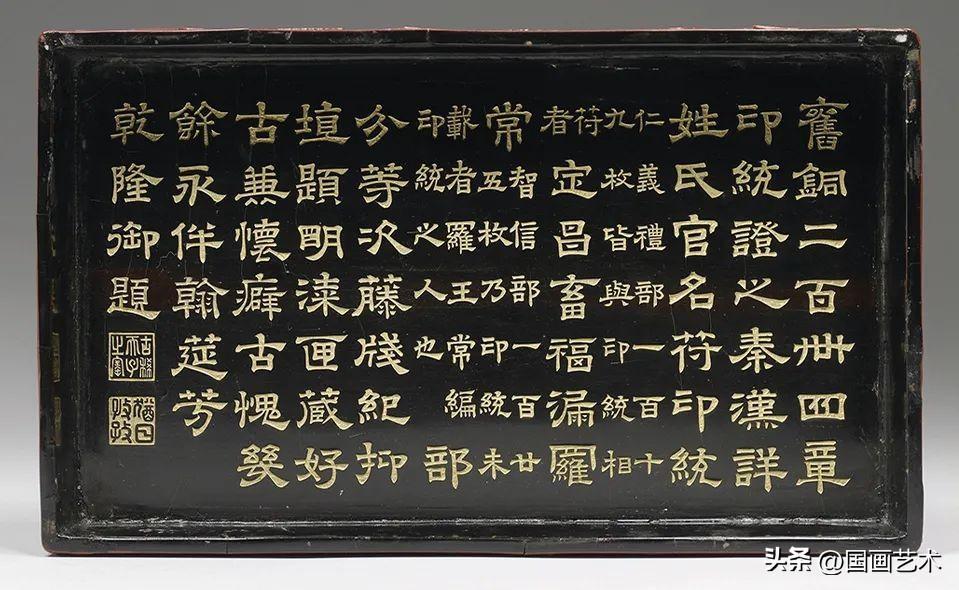 舊銅二百卌四章
印統證之秦漢詳
姓氏官名符印統
仁義禮部一百十
九枚皆與印統相
符
者
定昌畜福漏羅
常
智信部一百廿
五枚乃印統未
載者羅王常編
印統之人也
部
分等次藤牋紀抑
埴題明漆匣藏好
古兼懷癖古愧幾
餘永伴翰筵芳
乾隆御題
古稀天子之寶
猶日孜孜
头条 @国画艺术